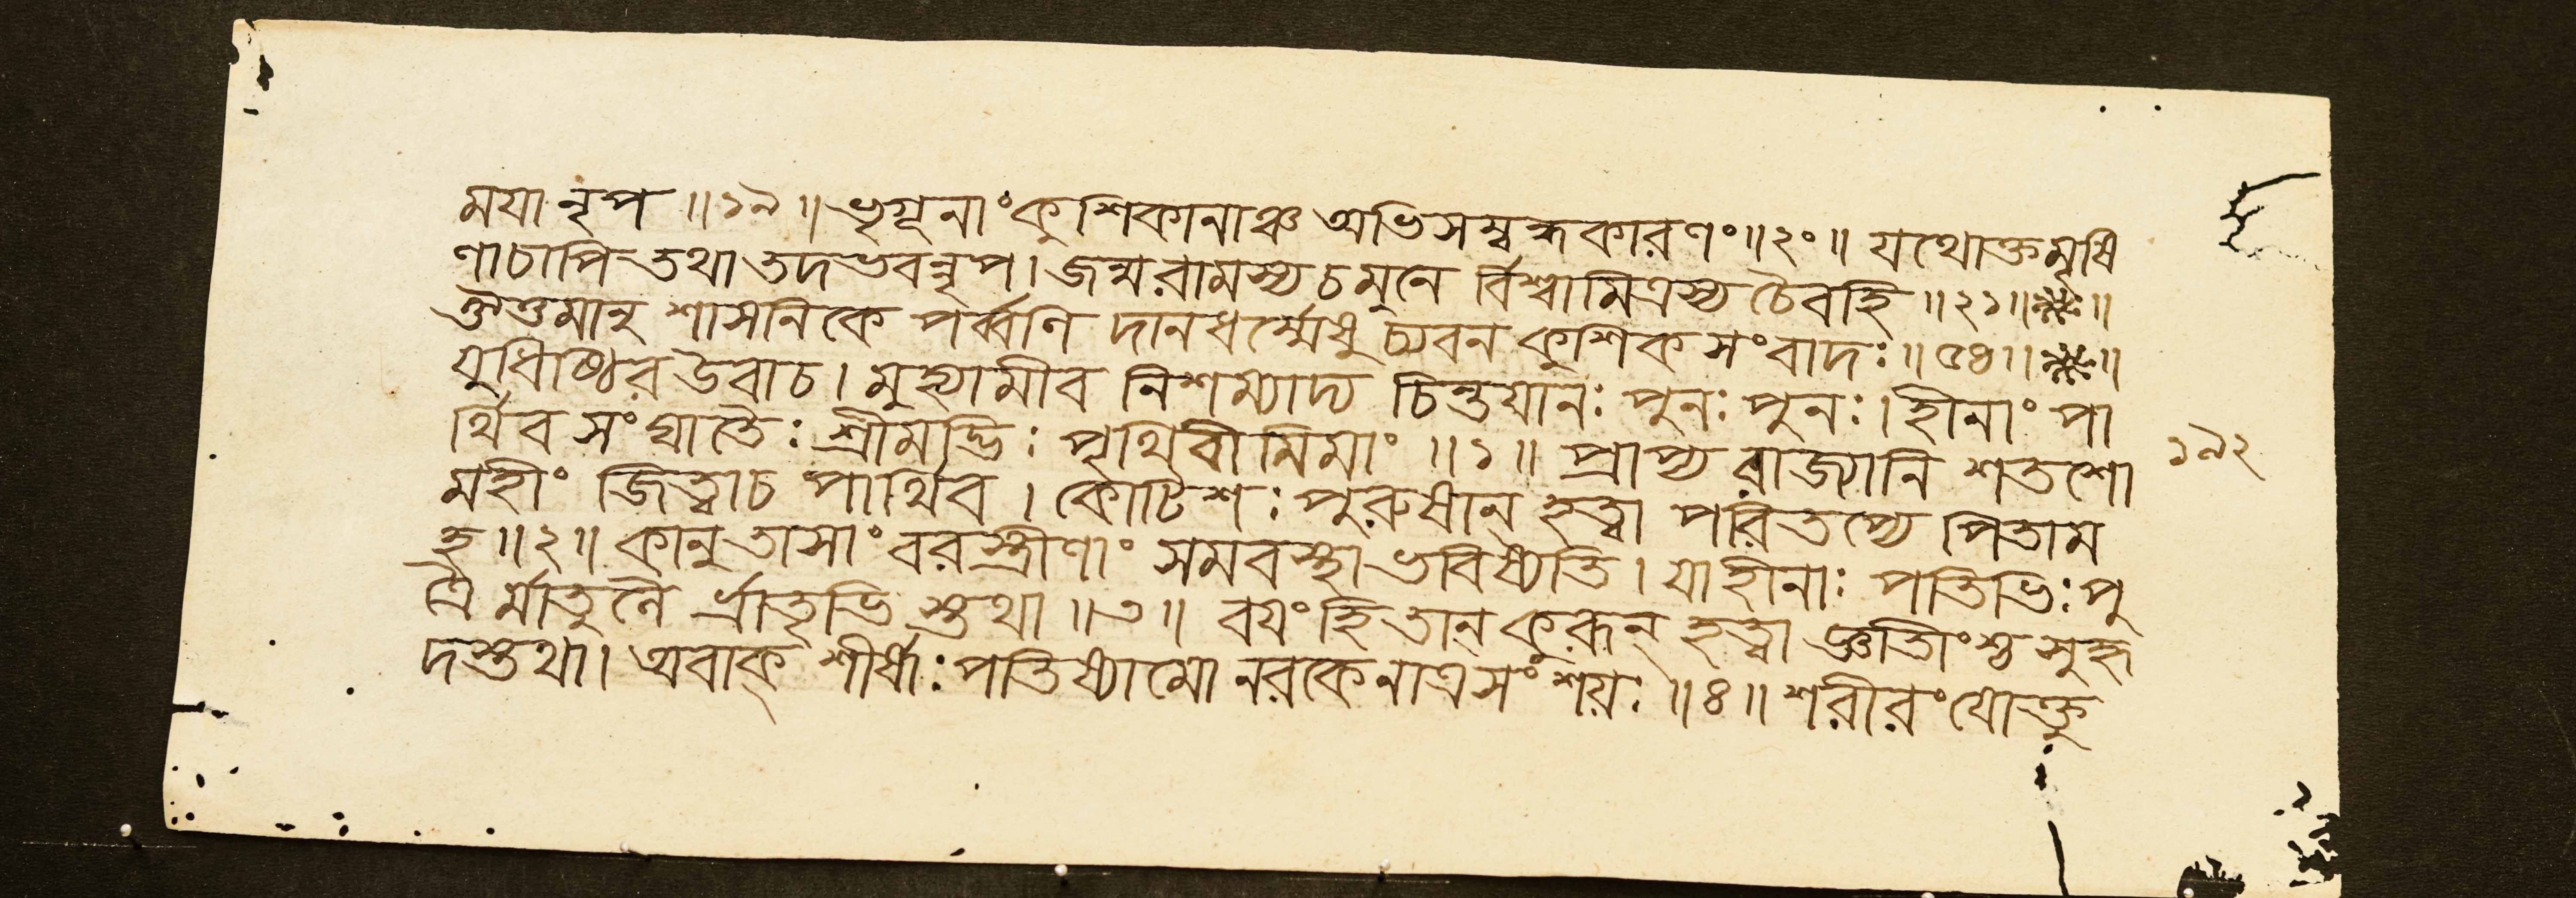 ময়া নৃপ ॥ ১৯ ॥ ভৃগূনাং কুশিকানাঞ্চ অভিসম্বন্ধকারণং ॥ ২০ ॥ যথোক্তমৃষি
ণাচাপি তথা তদভবন্নৃপ । জন্ম রামস্য চ মুনে র্বিশ্বামিত্রস্য চৈবহি ॥ ২১ ॥ ※ ॥
ওঁতমানু শাসনিকে পর্ব্বণি দানধর্ম্মেষু চ্যবন কুশিক সংবাদঃ ॥ ৫৪ ॥ ※ ॥
যুধিষ্ঠির উবাচ । মুহ্যামীব নিশম্যাদ্য চিন্তয়ানঃ পুনঃ পুনঃ । হীনাং পা
র্থিব সংঘাতৈঃ শ্রীমদ্ভিঃ পৃথিবীমিমাং ॥ ১ ॥ প্রাপ্য রাজ্যানি শতশো
১৯২
মহীং জিত্বাচ পার্থিব । কোটিশঃ পুরুষান্ হত্বা পরিতপ্যে পিতাম
হ ॥ ২ ॥ কানু তাসাং বরস্ত্রীণাং সমবস্থা ভবিষ্যতি । যাহীনাঃ পতিভিঃ পু
ত্রৈ র্মাতুলৈ র্ভ্রাতৃভি স্তথা ॥ ৩ ॥ বয়ংহি তান্ কুরূন্ হত্বা জ্ঞাতিংশ্চ সুহৃ
দস্তথা । অবাক্ শীর্ষাঃ পতিষ্যামো নরকে নাত্রসংশয়ঃ ॥ ৪ ॥ শরীরং যোক্তু